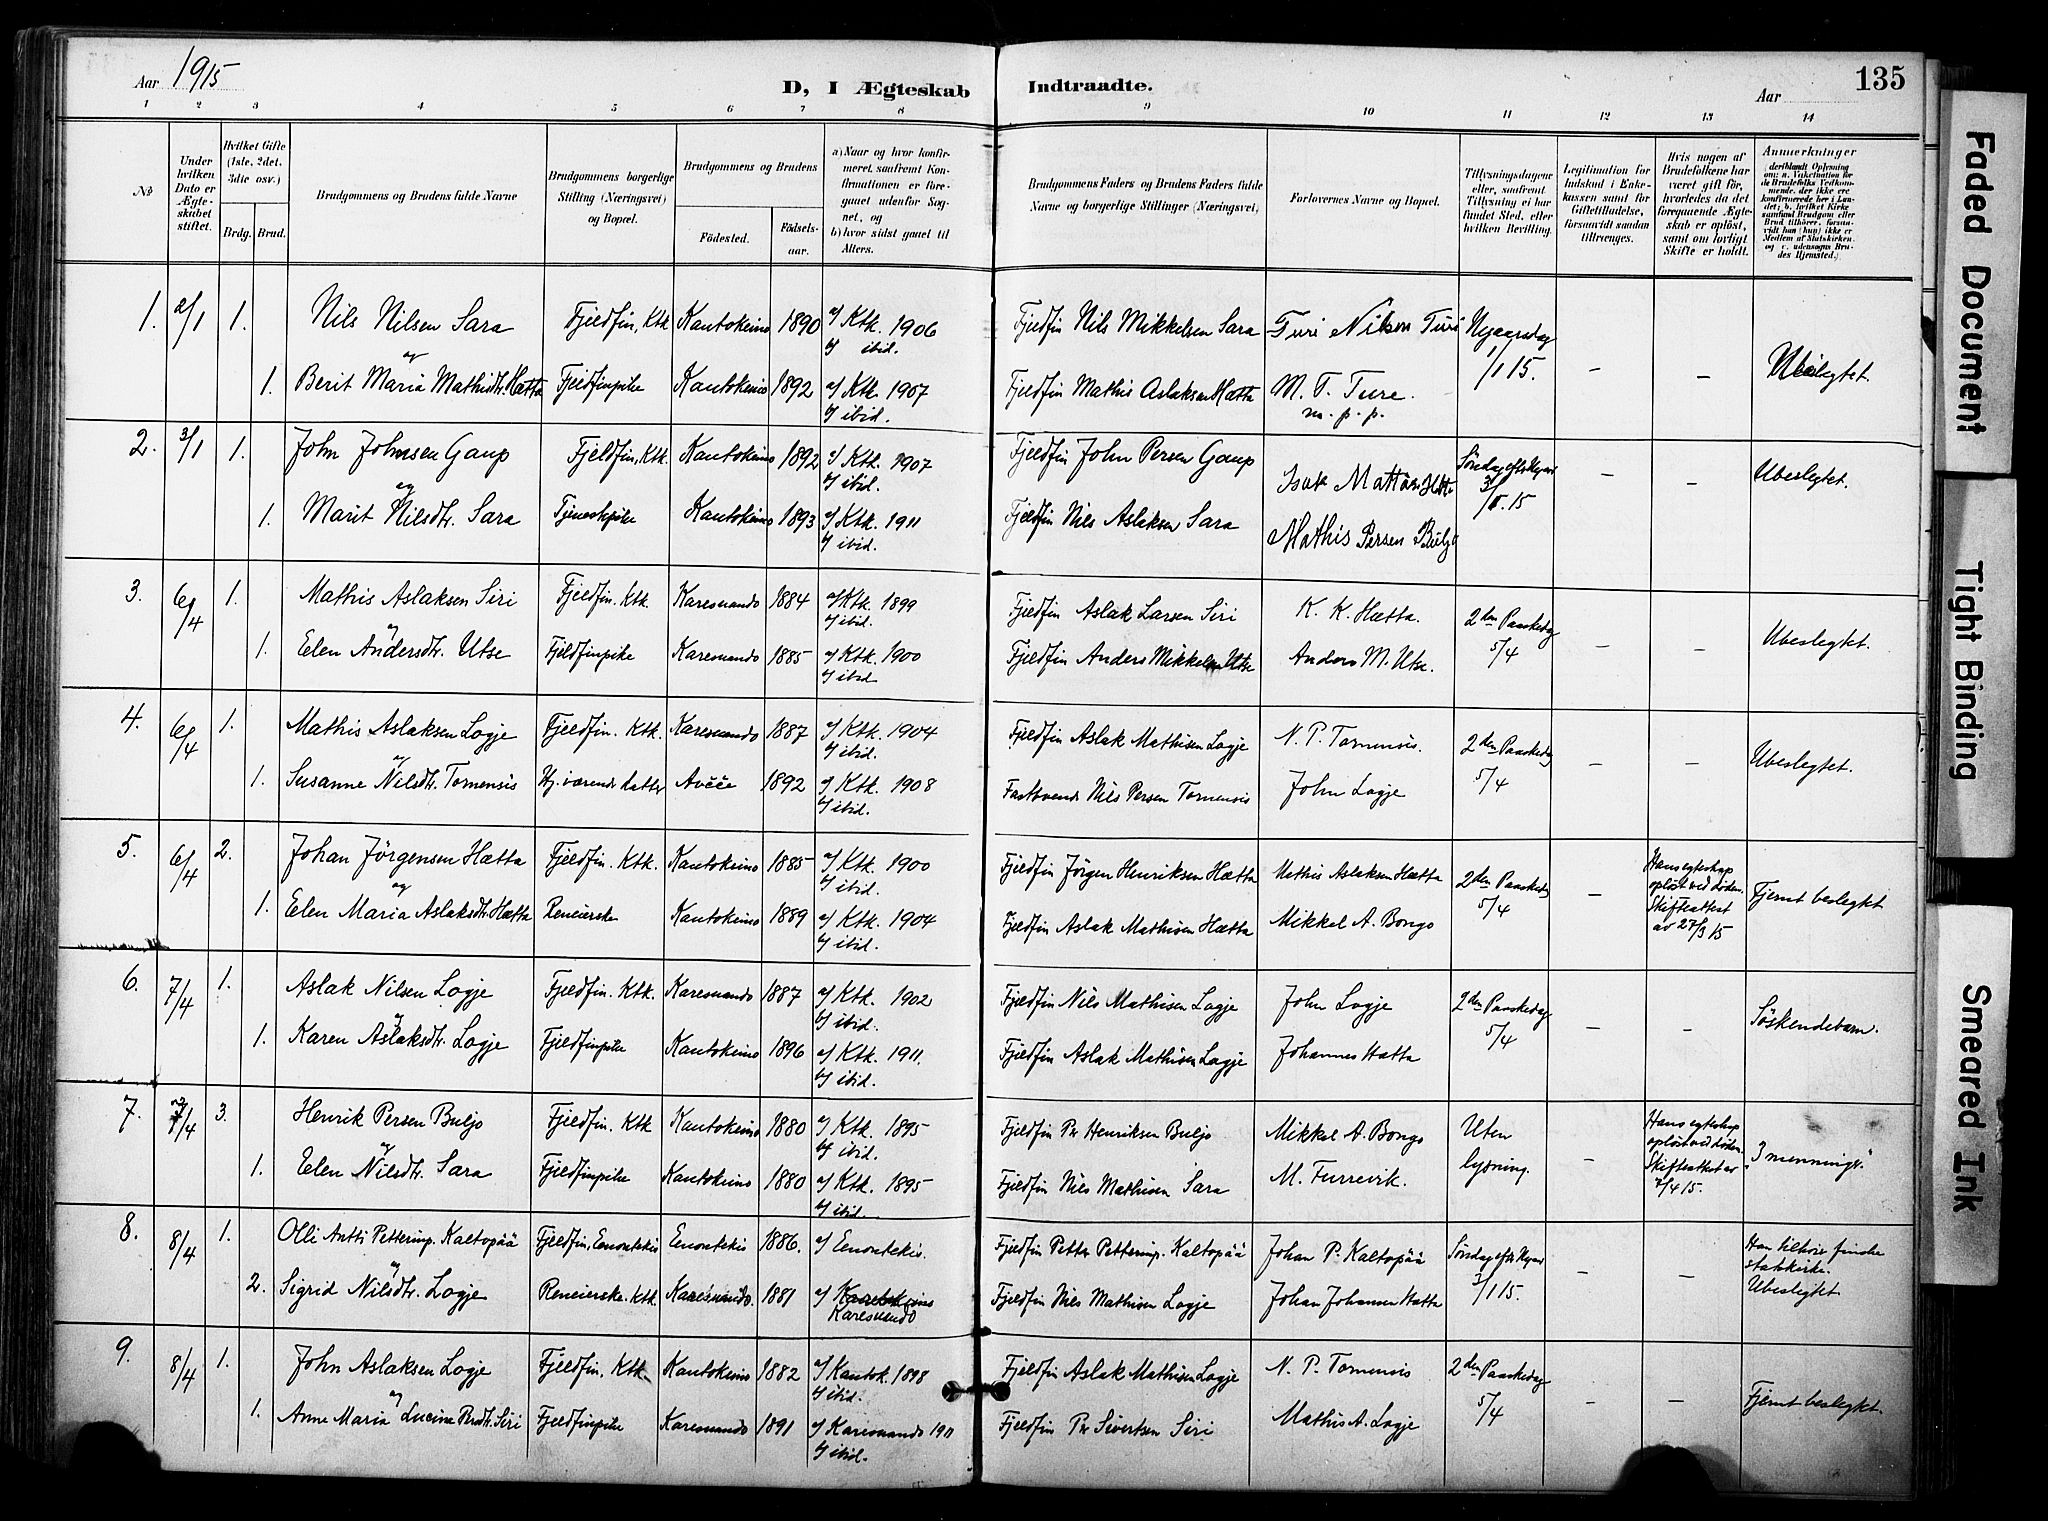 Aar 1915
D, I Ægteskab Indtraadte.
Aar
135
1 2 3 4 5 6 7 8 9 10 11 12 13 14
No
Under hvilken Dato er Ægteskabet stiftet.
Hvilket Gifte (1ste, 2det, 3die osv.)
Brdg. Brud.
Brudgommens og Brudens fulde Navne
Brudgommens borgerlige Stilling (Næringsvei) og Bopæl.
Brudgommens og Brudens
Fødested.
Fødselsaar.
a) Naar og hvor konfirmeret, saafremt Konfirmationen er foregaaet udenfor Sognet, og
b) hvor sidst gaaet til Alters.
Brudgommens Faders og Brudens Faders fulde Navne og borgerlige Stillinger (Næringsvei)
Forlovernes Navne og Bopæl.
Tillysningsdagene eller, saafremt Tillysning ei har fundet Sted, efter hvilken Bevilling.
Legitimation for Indskud i Enkekassen samt for Giftetilladelse, forsaavidt saadan tiltrænges.
Hvis nogen af Brudefolkene har været gift før, hvorledes da det foregaaende Ægteskab er opløst, samt om lovligt Skifte er holdt.
Anmærkninger
1. 2/1 1. Nils Nilsen Sara Fjeldfin, Ktk Kautokeino 1890 a/ Ktk. 1906 Fjeldfin Nils Mikkelsen Sara Turi Nilsen Turi Nyaarsdag
og b/ ibid. 1/1 15. – –
1. Berit Maria Mathisdtr. Hætta Fjeldfinpike Kautokeino 1892 a/ Ktk. 1907 Fjeldfin Mathis Aslaksen Hætta M. T. Ture. Ubeslegtet.
b/ ibid. m. p. p.
2. 3/1 1. John Johnsen Gaup Fjeldfin, Ktk. Kautokeino 1892 a/ Ktk. 1907 Fjeldfin John Persen Gaup Søndag eft. Nyaar – – Ubeslegtet.
og b/ ibid. Isak Mattisen Hætta 3/1. 15
1. Marit Nilsdtr. Sara Tjenestepike Kautokeino 1893 a/ Ktk. 1911 Fjeldfin Nils Aslaksen Sara
b/ ibid. Mathis Persen Buljo
3. 6/4 1. Mathis Aslaksen Siri Fjeldfin. Ktk. Karesuando 1884 a/ Ktk. 1899 Fjeldfin Aslak Larsen Siri K. K. Hætta. 2den Paaskedag
og b/ ibid. 5/4 – –
1. Elen Andersdtr. Utse Fjeldfinpike Karesuando 1885 a/ Ktk. 1900 Fjeldfin Anders Mikkelsen Utse Anders M. Utse. Ubeslegtet.
b/ ibid
4. 6/4 1. Mathis Aslaksen Logje Fjeldfin. Ktk. Karesuando 1887 a/ Ktk. 1904 Fjeldfin Aslak Mathisen Logje N. P. Tornensis. 2den Paaskedag
og b/ ibid. 5/4 – – Ubeslegtet.
1. Susanne Nilsdtr. Tornensis Hj. værende datter Avčče 1892 a/ Ktk. 1908 Fastboende Nils Persen Tornensis John Logje
b/ ibid.
5. 6/4 2. Johan Jörgensen Hætta Fjeldfin. Ktk. Kautokeino 1885 a/ Ktk. 1900 Fjeldfin Jörgen Henriksen Hætta Mathis Aslaksen Hætta 2den Paaskedag – Hans egteskap opløst ved døden. Skifteattest av 27/3 15 Fjernt beslegtet
og b/ ibid. 5/4
1. Elen Maria Aslaksdtr. Hætta Reneierske Kautokeino 1889 a/ Ktk. 1904 Fjeldfin Aslak Mathisen Hætta Mikkel A. Bongo
b/ ibid.
6. 7/4 1. Aslak Nilsen Logje Fjeldfin. Ktk. Karesuando 1887 a/ Ktk. 1902 Fjeldfin Nils Mathisen Logje John Logje 2den Paaskedag
og b/ ibid. 5/4 – – Søskendebarn.
1. Karen Aslaksdtr. Logje Fjeldfinpike Kautokeino 1896 a/ Ktk. 1911. Fjeldfin Aslak Mathisen Logje Johannes Hætta
b/ ibid.
7. 7/4 3. Henrik Persen Buljo Fjeldfin. Ktk Kautokeino 1880 a/ Ktk. 1895 Fjeldfin Pr. Henriksen Buljo Mikkel A. Bongo Uten lysning. – Hans egteskap opløst ved døden. Skifteattest av 7/4 15. "3 menninger."
og b/ ibid.
1. Elen Nilsdtr. Sara Fjeldfinpike Kautokeino 1880 a/ Ktk. 1895 Fjeldfin Nils Mathisen Sara M. Furrevik.
b/ ibid.
8. 8/4 1. Olli Antti Petterinp. Kaltopää Fjeldfin, Enontekis Enontekis 1886. a/ Enontekis. Fjeldfin Petter Petterinp. Kaltopää Johan P. Kaltopää Søndag eft. Nyaar 3/1 15. – – Han tilhører finske statskirke.
og
2. Sigrid Nilsdtr. Logje Reneierske. Ktk. Karesuando. 1881 a/ Kautokeino Karesuando Fjeldfin Nils Mathisen Logje Johan Johansen Hætta Ubeslegtet
9. 8/4 1. John Aslaksen Logje Fjeldfin. Ktk. Kautokeino 1882 a/ Kautok. 1898 Fjeldfin Aslak Mathisen Logje N. P. Tornensis 2den Paaskedag
og b/ ibid. 5/4 – – Fjernt beslegtet.
1. Anne Maria Lucine Persdtr. Siri Fjeldfinpike Karesuando 1891 a/ Karesuando 1911 Fjeldfin Pr Sivertsen Siri Mathis A. Logje
b/ ibid.
Faded Document
Tight Binding
Smeared Ink